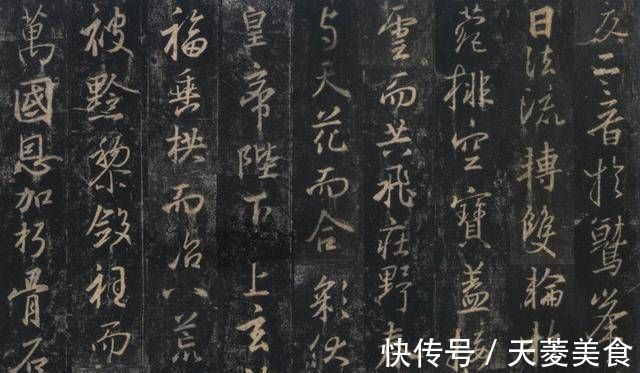 交二音於鷲峯
日法流轉雙輪於
菀排空寶蓋接
雲而共飛莊野春
與天花而合彩伏
皇帝陛下上玄
福垂拱而治八荒
被黔黎斂衽而
萬國恩加朽骨石
快传号／天菱美食